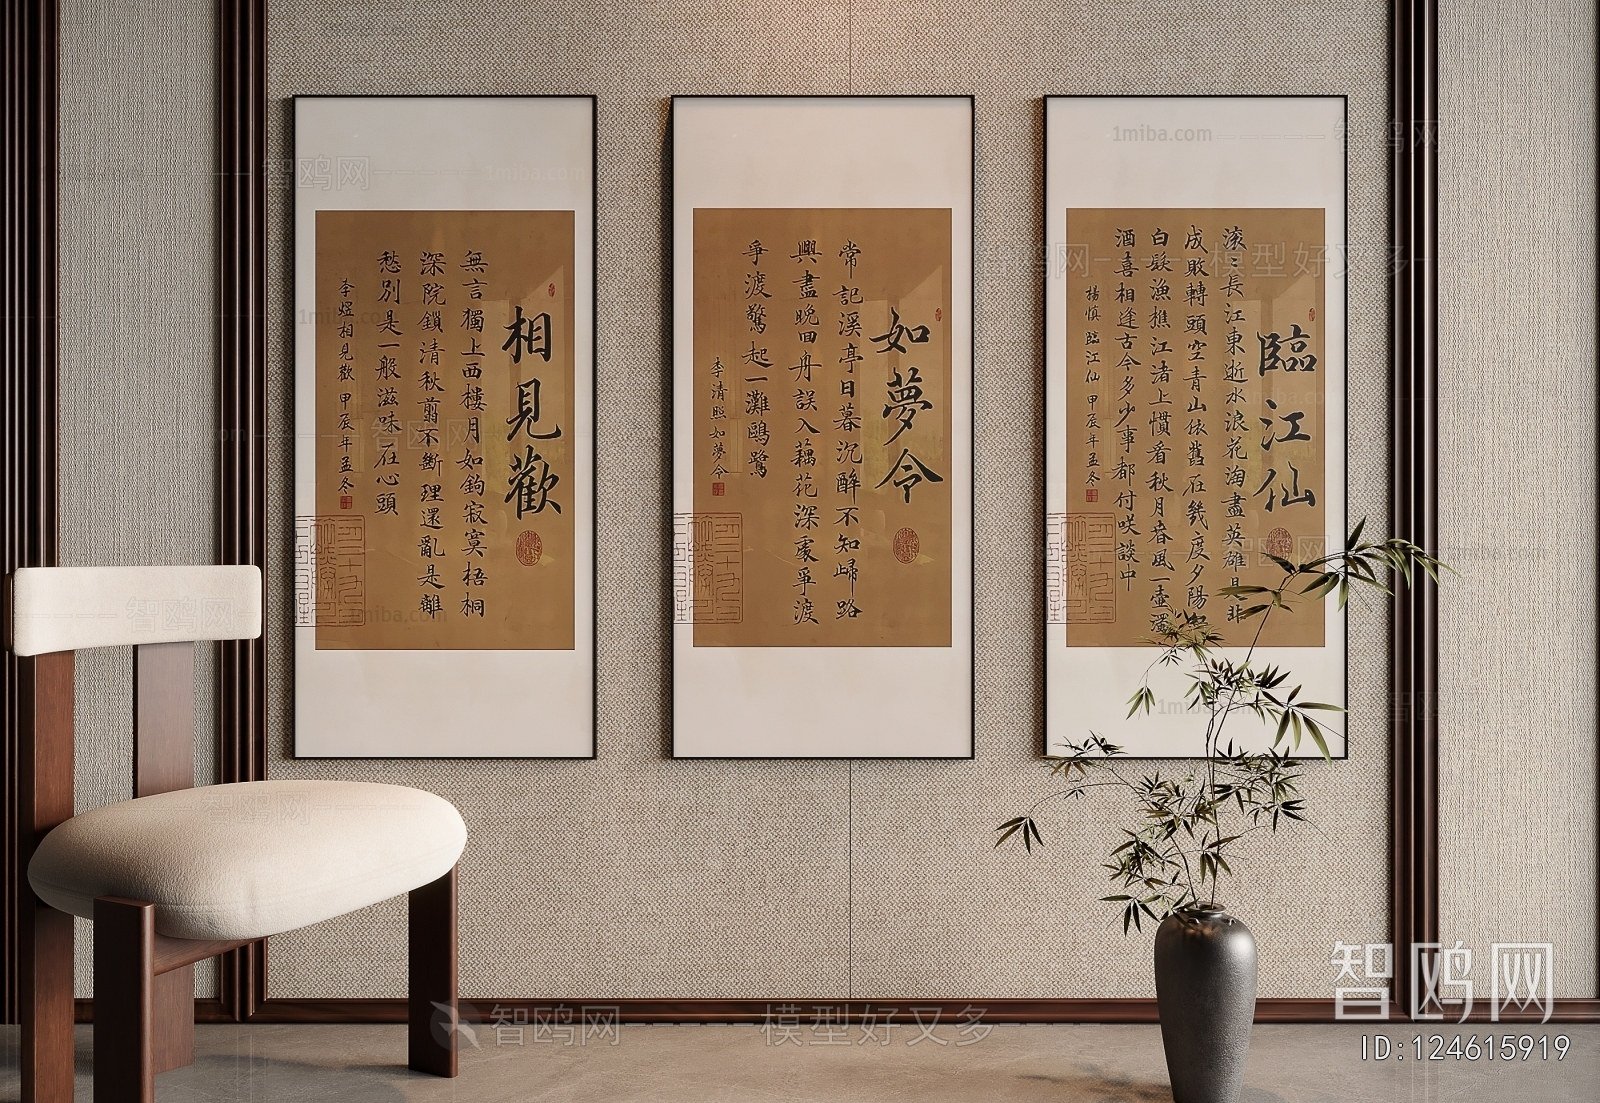 相見歡
無言獨上西樓月如鉤寂寞梧桐
深院鎖清秋剪不斷理還亂是離
愁別是一般滋味在心頭
李煜相見歡 甲辰年孟冬
如夢令
常記溪亭日暮沉醉不知歸路
興盡晚回舟誤入藕花深處爭渡
爭渡驚起一灘鷗鷺
李清照如夢令
臨江仙
滾〻長江東逝水浪花淘盡英雄是非
成敗轉頭空青山依舊在幾度夕陽
白髮漁樵江渚上慣看秋月春風一壺濁
酒喜相逢古今多少事都付咲談中
楊慎臨江仙 甲辰年孟冬
1miba.com
智鸥网
模型好又多
智鸥网
ID:124615919